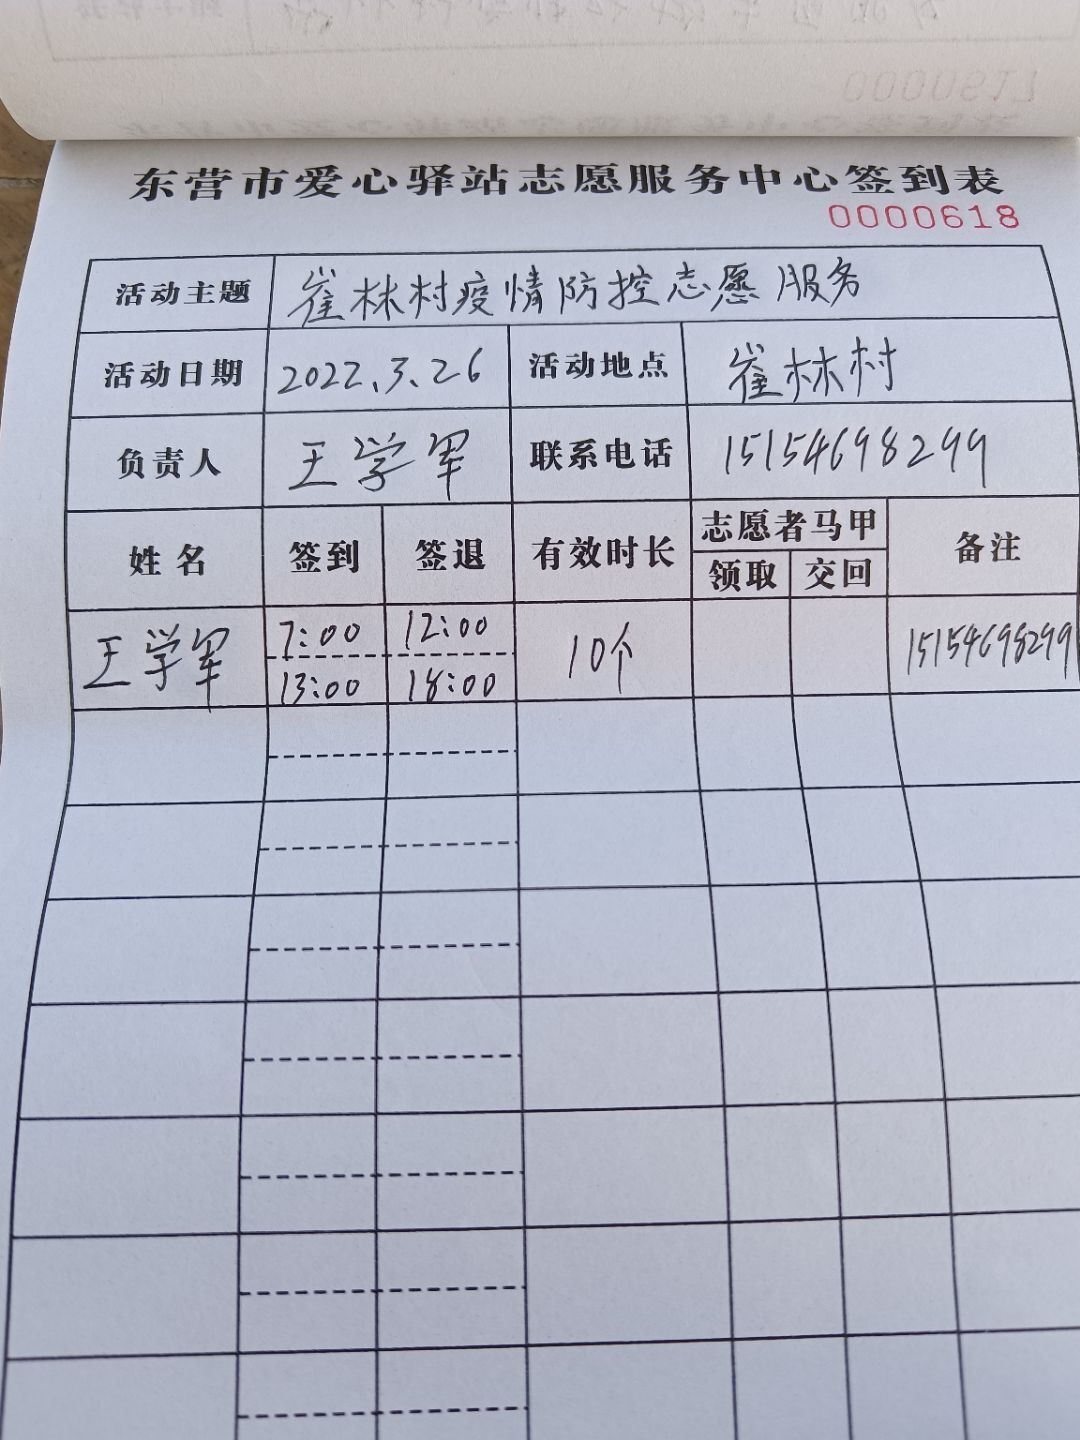 东营市爱心驿站志愿服务中心签到表
0000618
活动主题 崔林村疫情防控志愿服务
活动日期 2022.3.26 活动地点 崔林村
负责人 王学军 联系电话 15154698299
姓名 签到 签退 有效时长 志愿者马甲 备注
领取 交回
王学军 7:00 12:00 10个 15154698299
13:00 18:00